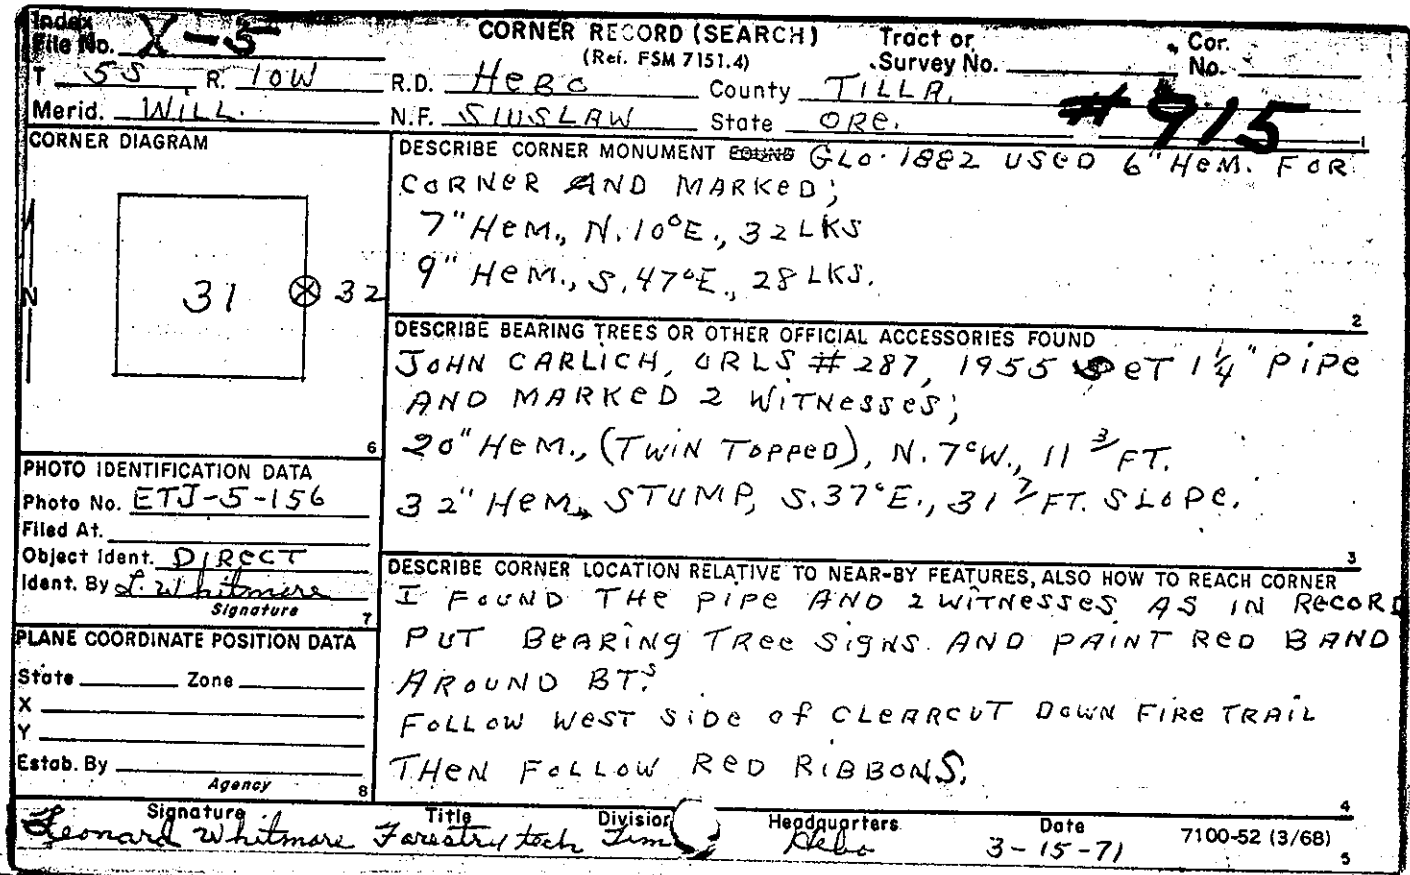 Index
File No. X-5
CORNER RECORD (SEARCH)
(Ref. FSM 7151.4)
Tract or
Survey No.
Cor.
No.
T 5S R. 10W
R.D. HEBO County TILLA.
#915
Merid. WILL.
N.F. SIUSLAW State ORE.
1
CORNER DIAGRAM
N
31 32
6
DESCRIBE CORNER MONUMENT FOUND GLO. 1882 USED 6" HEM. FOR
CORNER AND MARKED;
7" HEM., N.10°E., 32 LKS
9" HEM., S.47°E., 28 LKS.
2
DESCRIBE BEARING TREES OR OTHER OFFICIAL ACCESSORIES FOUND
JOHN CARLICH, ORLS #287, 1955 SET 1 1/4" PIPE
AND MARKED 2 WITNESSES;
20" HEM., (TWIN TOPPED), N.7°W., 11 3 FT.
32" HEM. STUMP, S.37°E., 31 7 FT. SLOPE.
3
PHOTO IDENTIFICATION DATA
Photo No. ETJ-5-156
Filed At.
Object Ident. DIRECT
Ident. By L. Whitmore
Signature
7
DESCRIBE CORNER LOCATION RELATIVE TO NEAR-BY FEATURES, ALSO HOW TO REACH CORNER
I FOUND THE PIPE AND 2 WITNESSES AS IN RECORD
PUT BEARING TREE SIGNS AND PAINT RED BAND
AROUND BT.S
FOLLOW WEST SIDE OF CLEARCUT DOWN FIRE TRAIL
THEN FOLLOW RED RIBBONS.
4
PLANE COORDINATE POSITION DATA
State Zone
X
Y
Estab. By
Agency
8
Signature Title Division Headquarters Date
Leonard Whitmore Forestry tech Tim Hebo 3-15-71
7100-52 (3/68)
5